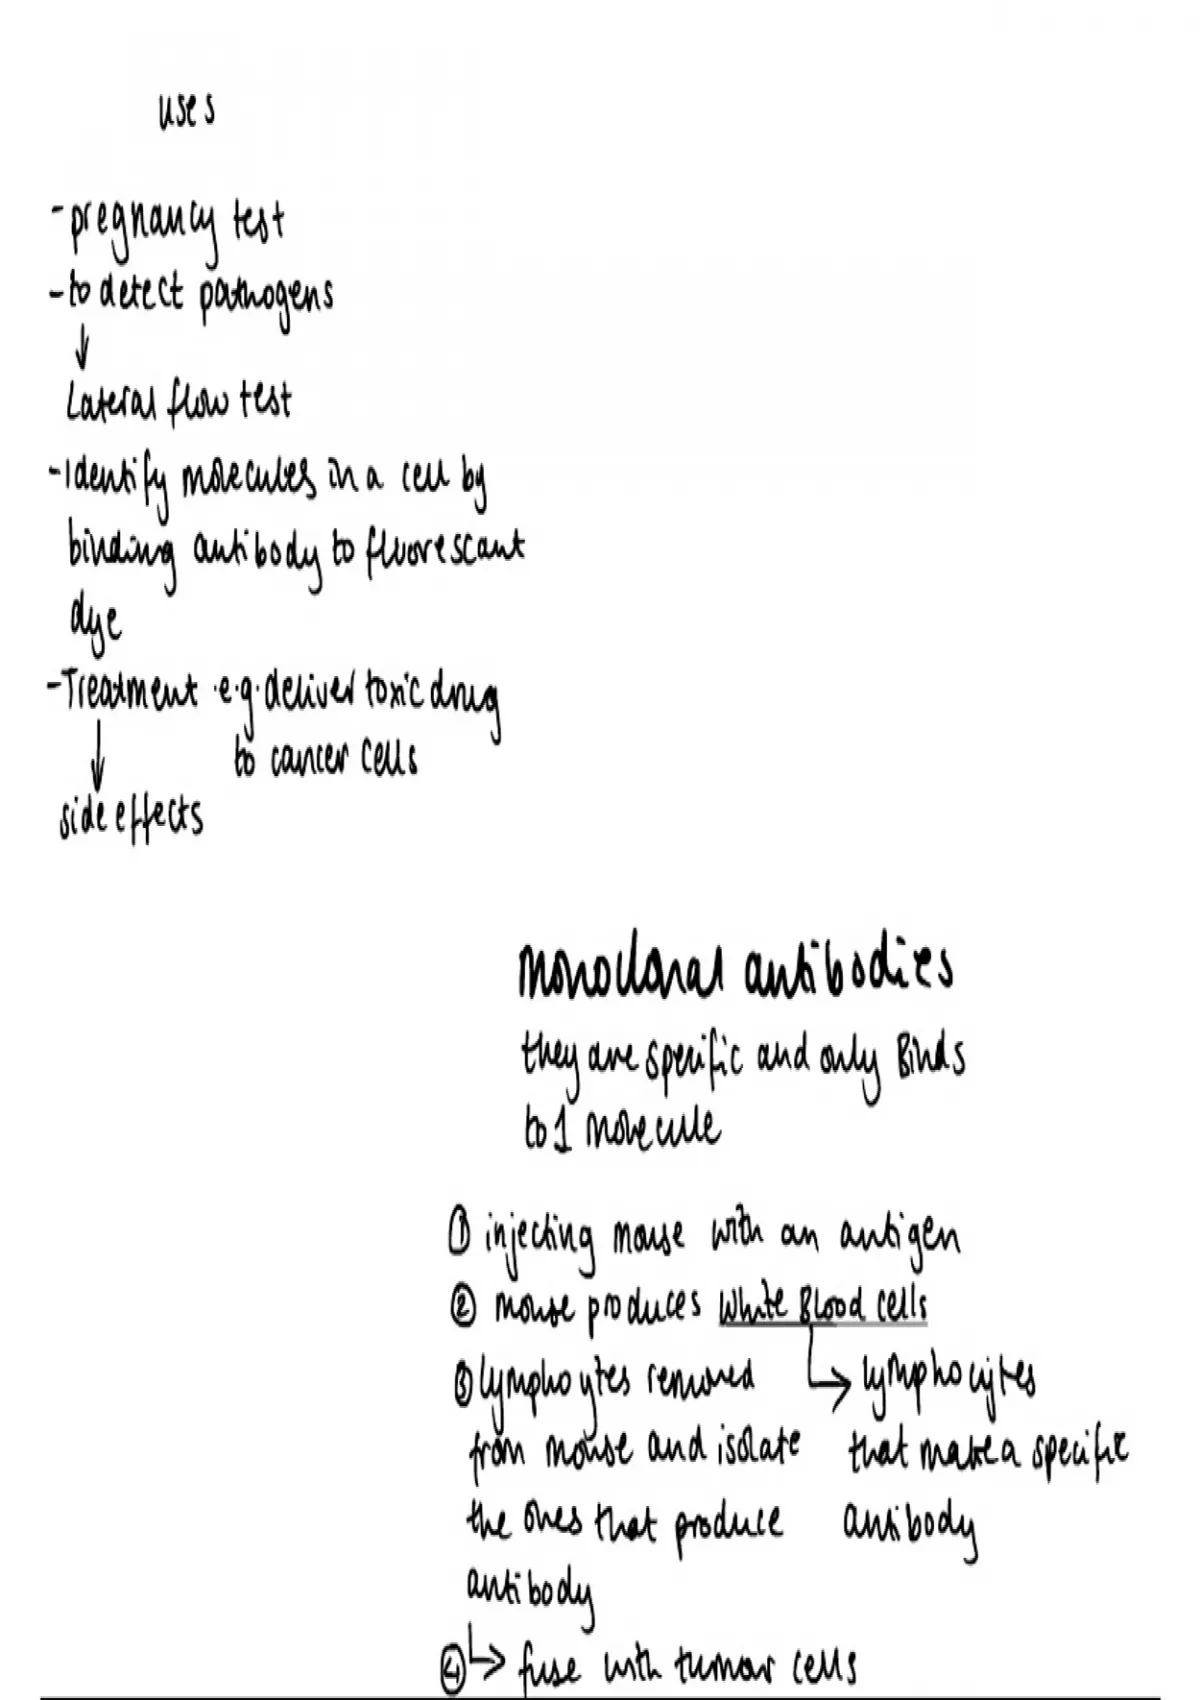 uses
- pregnancy test
- to detect pathogens
↓
Lateral flow test
- Identify molecules in a cell by
binding antibody to fluorescant
dye
- Treatment e.g. deliver toxic drug
to cancer cells
↓
side effects
Monoclonal antibodies
they are specific and only Binds
to 1 molecule
① injecting mouse with an antigen
② mouse produces White Blood cells
↳ lymphocytes
that make a specific
antibody
③ lymphocytes removed
from mouse and isolate
the ones that produce
antibody
④ ↳ fuse with tumour cells